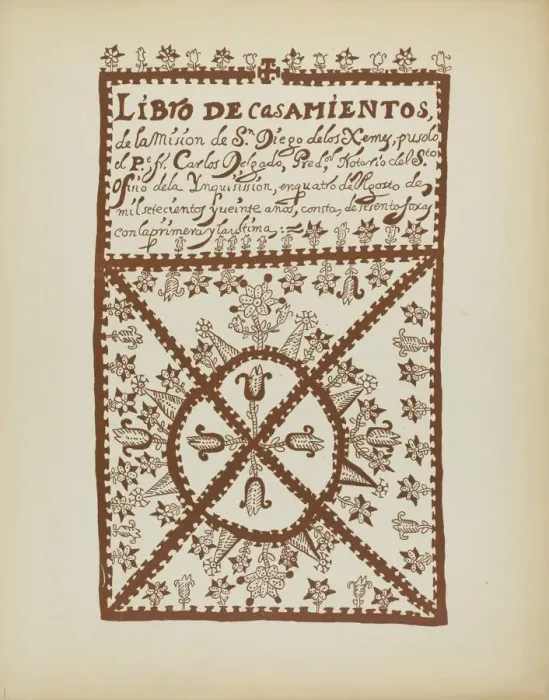 LiBro DE CasAMiENTOS,
de la Mision de Sn Diego de los Xemes, pusolo
el Pe fr. Carlos Delgado, Predor, Notario del Sto
ofisio de la Ynquisission, en quatro de Agosto de
mil setecientos y ueinte años, consta, de sesenta foxas
con la primera y la vltima,